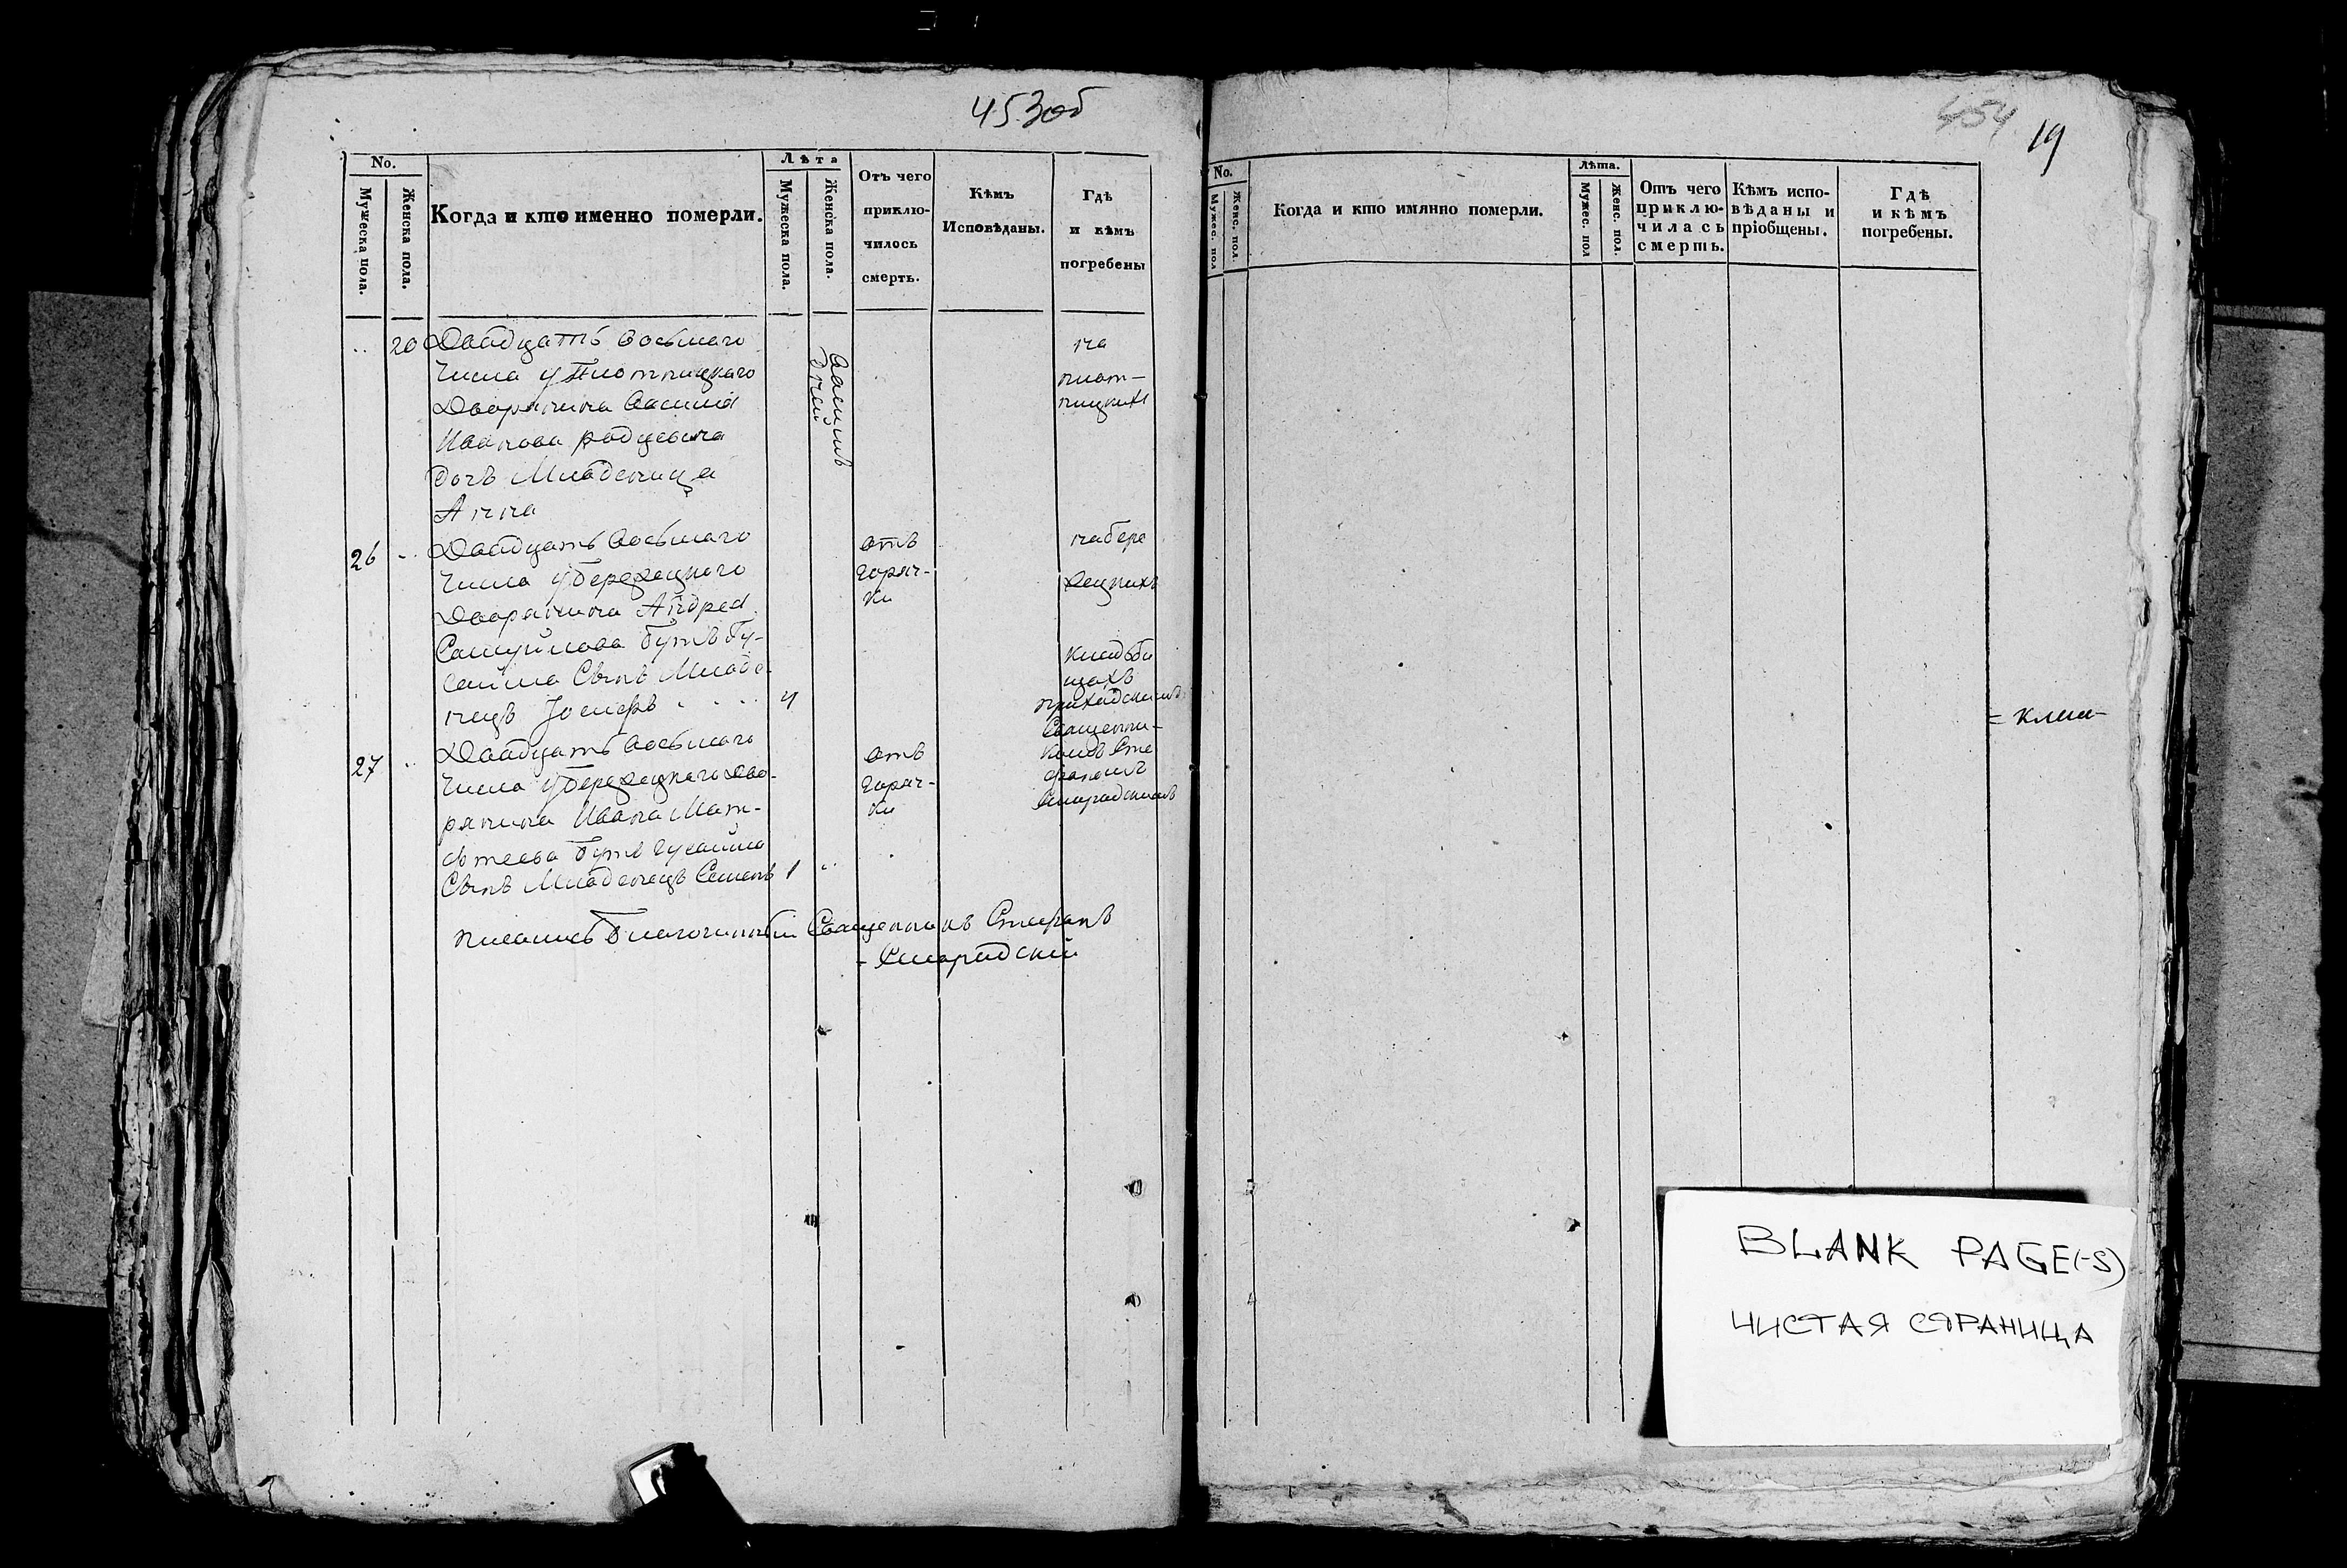 453об
No.
Мужеска пола.
Женска пола.
Когда и кто именно померли.
Лѣта
Мужеска пола.
Женска пола.
Отъ чего
приклю-
чилось
смерть.
Кѣмъ
Исповѣданы.
Гдѣ
и кѣмъ
погребены
20
Двадцать восьмаго
числа у Плотницкаго
Дворянина Василія
Иванова Родцевича
дочь Младеница
Анна
дней
на
плот-
ницких
26
Двадцать восьмаго
числа у Бережецкаго
Дворянина Андрея
Самуйлова Бутъ Гу-
саима Сынъ Младе-
нецъ Іосифъ
4
отъ
горяч-
ки
на бере
жецкихъ
кладби
щахъ
приходскимъ
Священни-
комъ Сте
фаномъ
27
Двадцать восьмаго
числа у Бережецкаго Дво-
рянина Ивана Мат-
фѣева Бутъ Гусаима
Сынъ Младенецъ Семенъ 1
отъ
горяч-
ки
Благочинный Священникъ Стефанъ
454
19
No.
Мужес. пол
Женс. пол.
Когда и кто имянно померли.
Лѣта.
Мужес. пол
Женс. пол.
Отъ чего
приклю-
чилась
смерть.
Кѣмъ испо-
вѣданы и
пріобщены.
Гдѣ
и кѣмъ
погребены.
BLANK PAGE(-S)
ЧИСТАЯ СТРАНИЦА